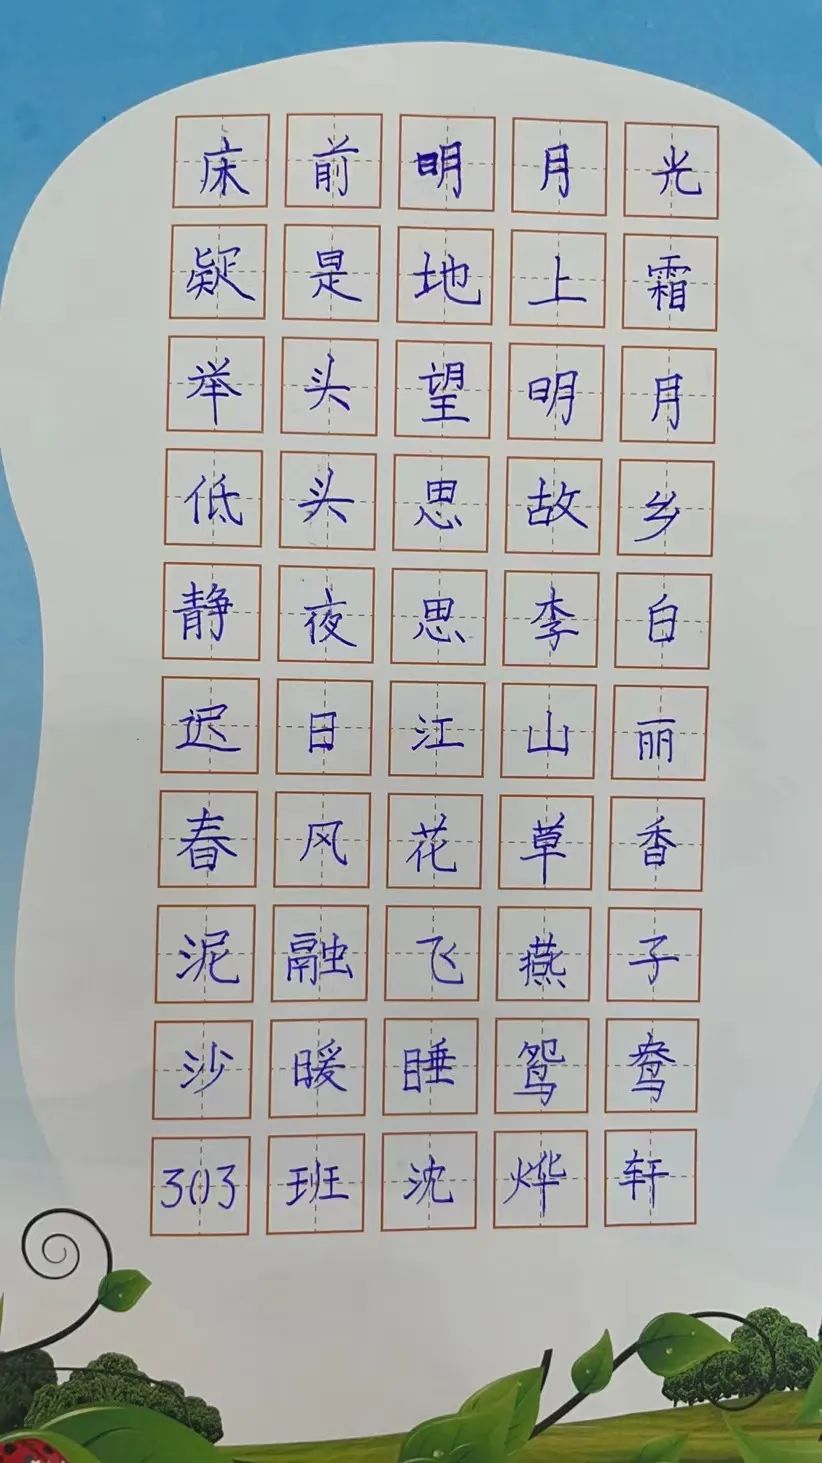 床前明月光
疑是地上霜
举头望明月
低头思故乡
静夜思李白
迟日江山丽
春风花草香
泥融飞燕子
沙暖睡鸳鸯
303班沈烨轩